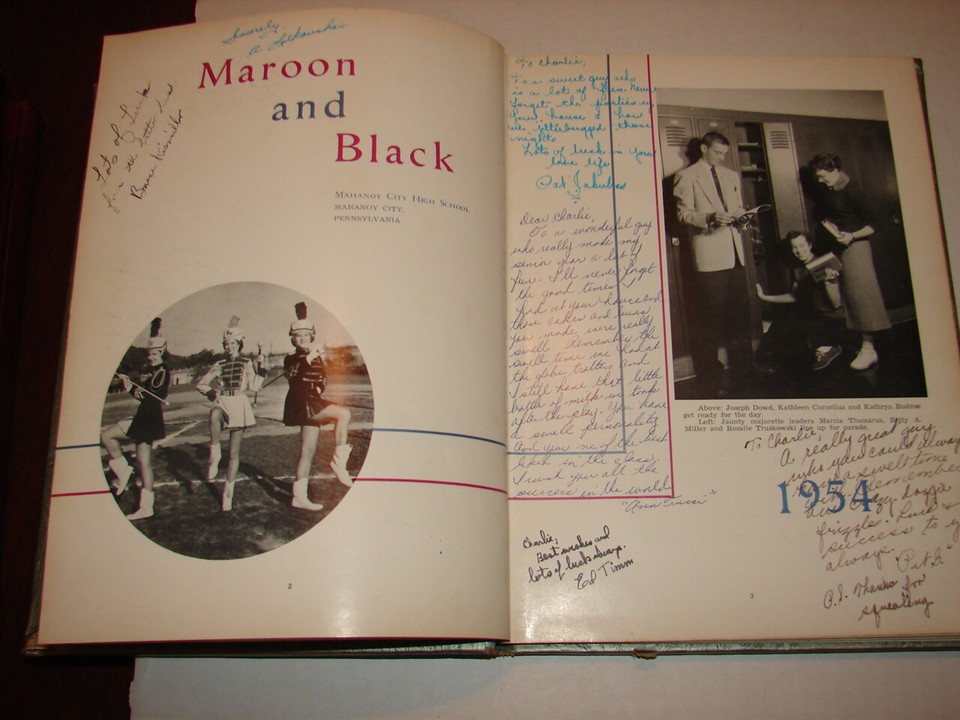 Sincerely
Maroon
and
Black
Lots of Luck
in the
Mahanoy City High School
MAHANOY CITY,
PENNSYLVANIA
2
To Charlie,
To a sweet guy who
is a lot of fun. Never
forget the parties in
your house & how
we jitterbugged those
nights
Lots of luck in your
love life
Pat Jakubes
Dear Charlie,
To a wonderful guy
who really made my
senior year a lot of
fun. I'll never forget
the good times I
had at your house and
those cakes and
you made, were really
swell. Remember the
swell time we had at
the globe trotters and
I still have that little
bottle of milk in
after the play. You have
a swell personality
and your one of the best
liked in the class,
I wish you all the
success in the world
"Ann
Charlie,
Best wishes and
lots of luck always.
Ed Timm
Above: Joseph Dowd, Kathleen Cornelius and Kathryn Budrow
get ready for the day.
Left: Jaunty majorette leaders Marcia Thomarus, Betty A.
Miller and Rosalie Truskowski line up for parade.
To Charlie,
A really great guy
who you could always
have a swell time
with. Remember
our crazy
frizzle. Luck &
success to y
always.
"Pat G."
P.S. Thanks for
squealing
1954
3